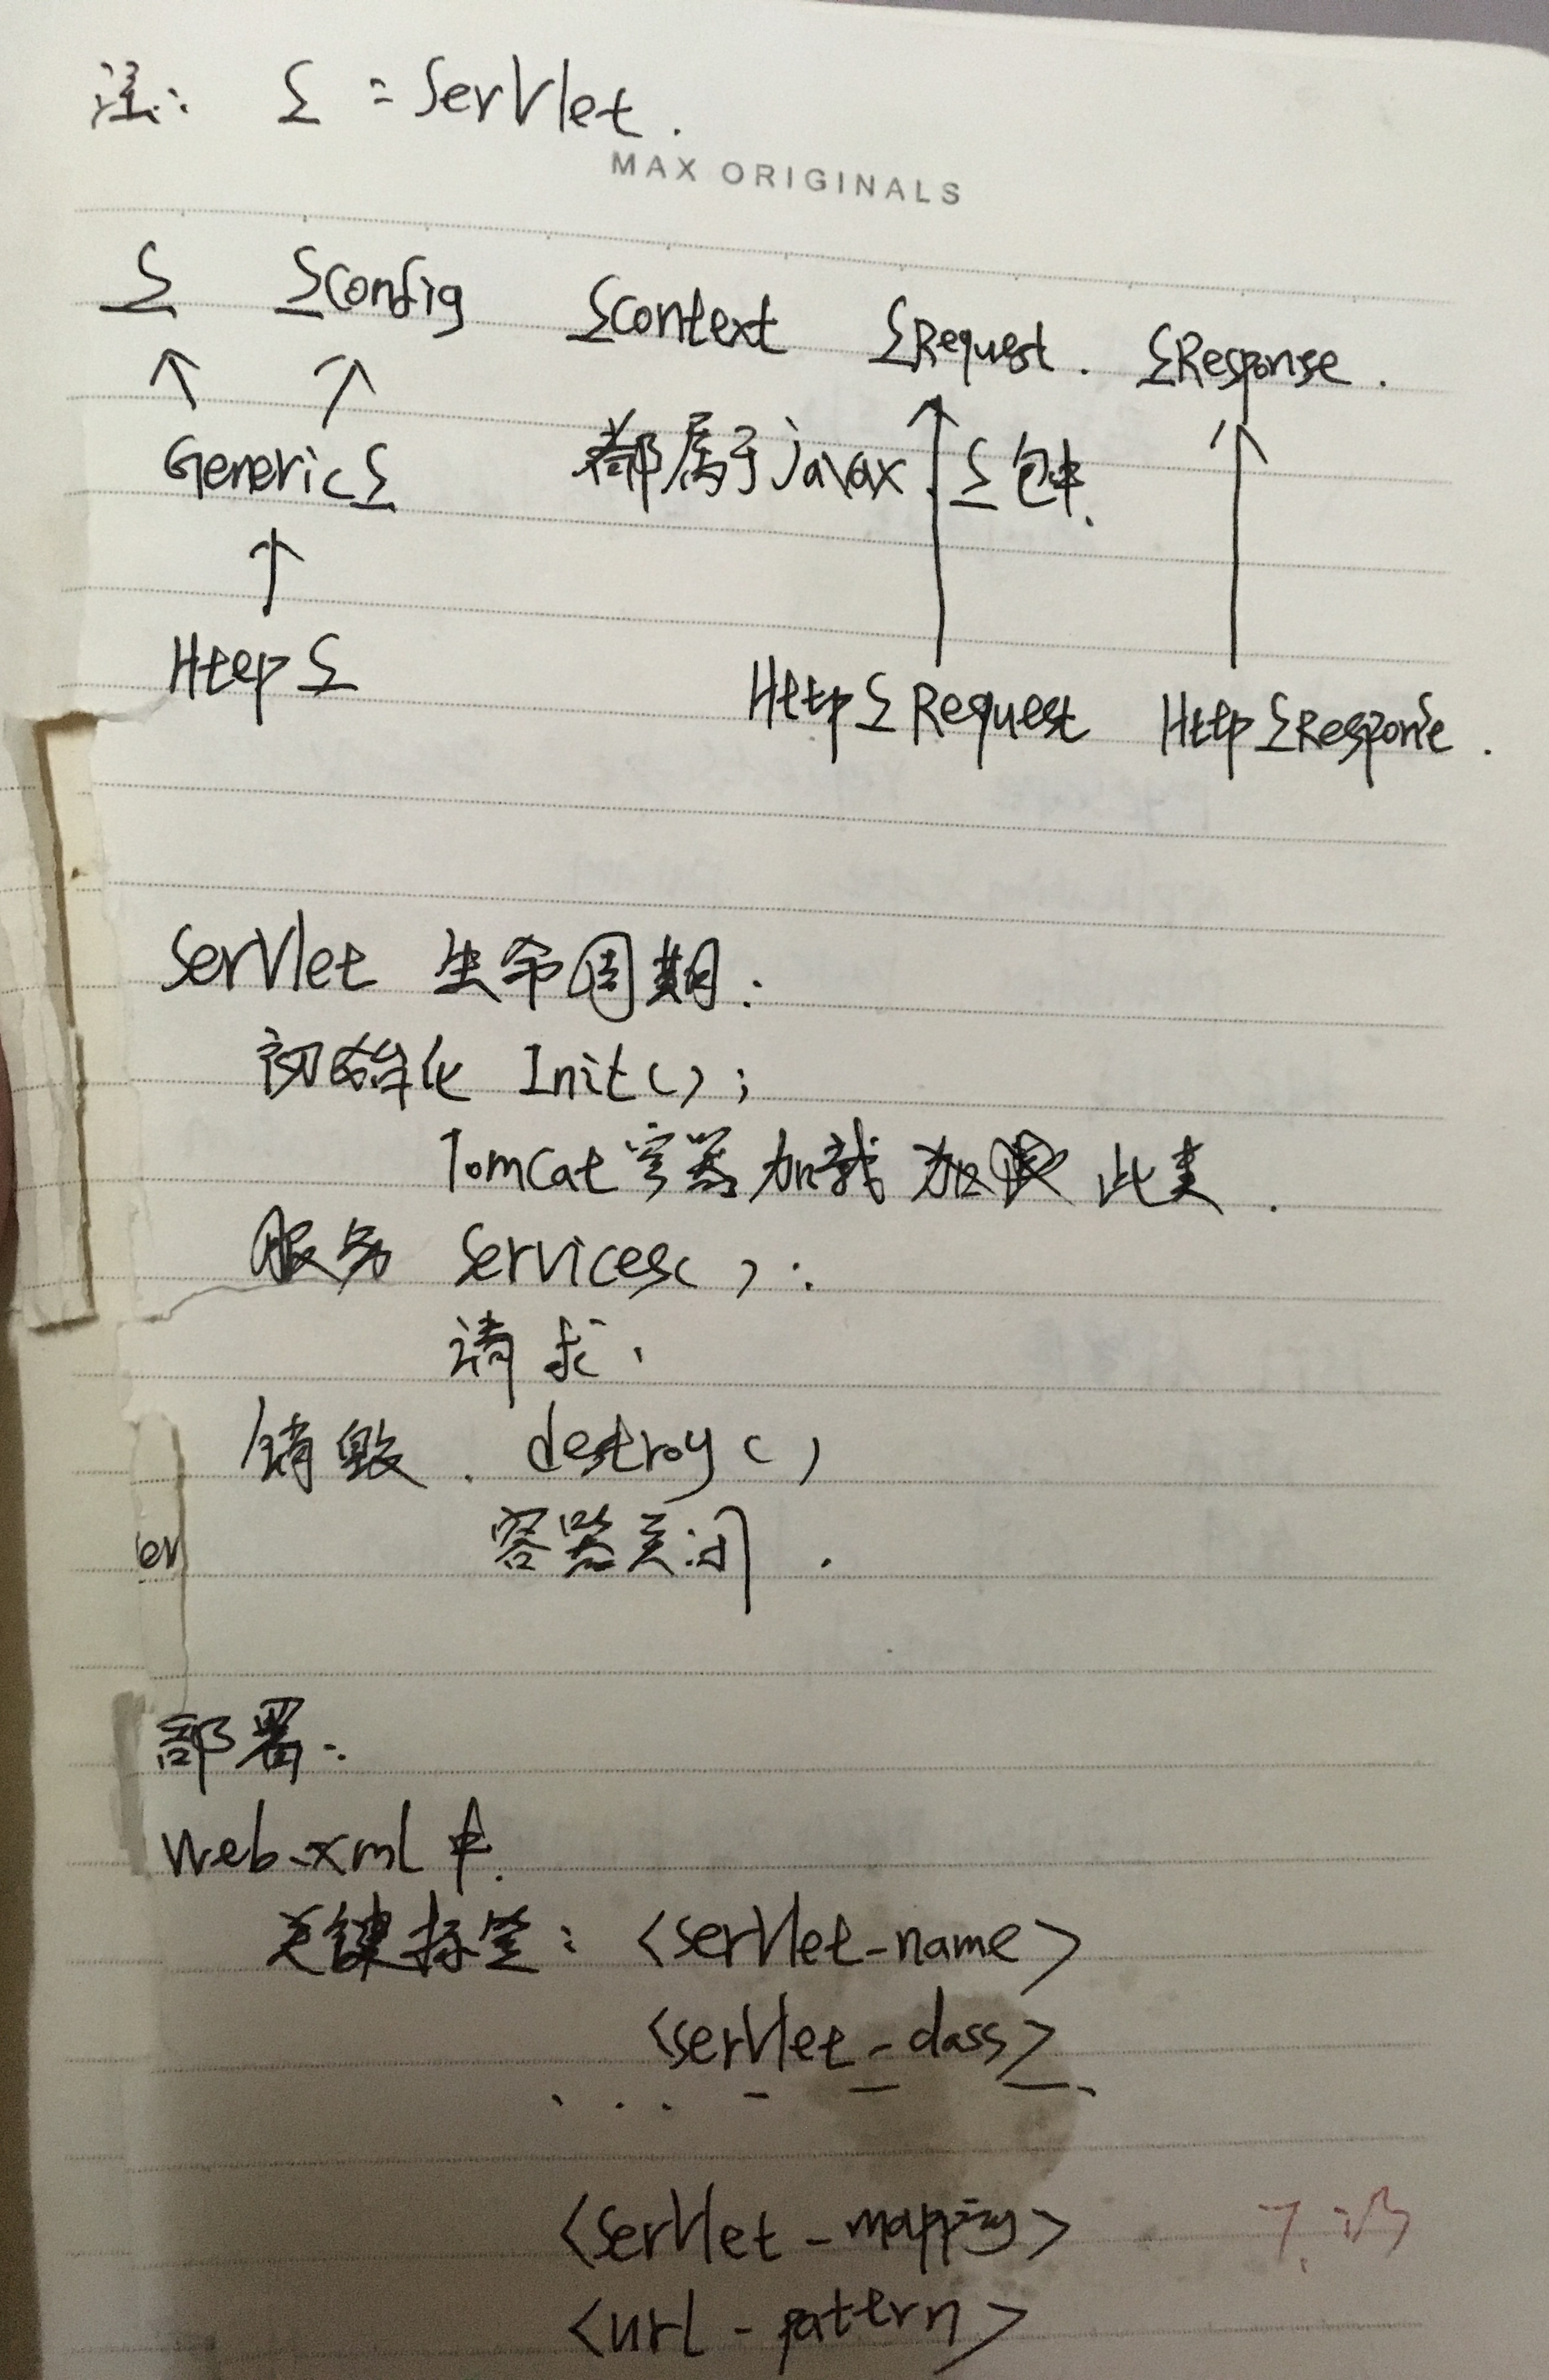 注: Σ = Servlet.
MAX ORIGINALS
Σ ΣConfig ΣContext ΣRequest. ΣResponse.
GenericΣ 都属于javax.Σ包中.
HttpΣ HttpΣRequest HttpΣResponse.
Servlet 生命周期:
初始化 Init();
Tomcat容器加载 此类.
服务 Services():
请求.
销毁. destroy()
er
容器关闭.
部署:
Web.xml中.
关键标签: <servlet-name>
<servlet-class>
<servlet-mapping>
<url-pattern>